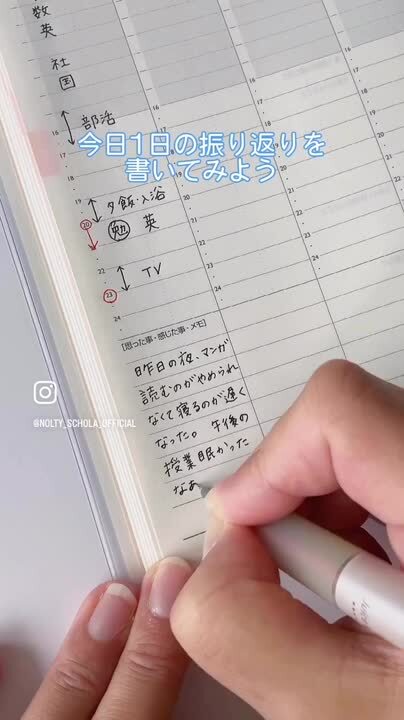 数
英
社
国
部活
今日1日の振り返りを
書いてみよう
夕飯・入浴
勉 英
TV
16
17
18
19
20
21
22
23
24
[思った事・感じた事・メモ]
昨日の夜、マンガ
読むのがやめられ
なくて寝るのが遅く
なった。午後の
授業眠かった
なあ
@NOLTY_SCHOLA_OFFICIAL